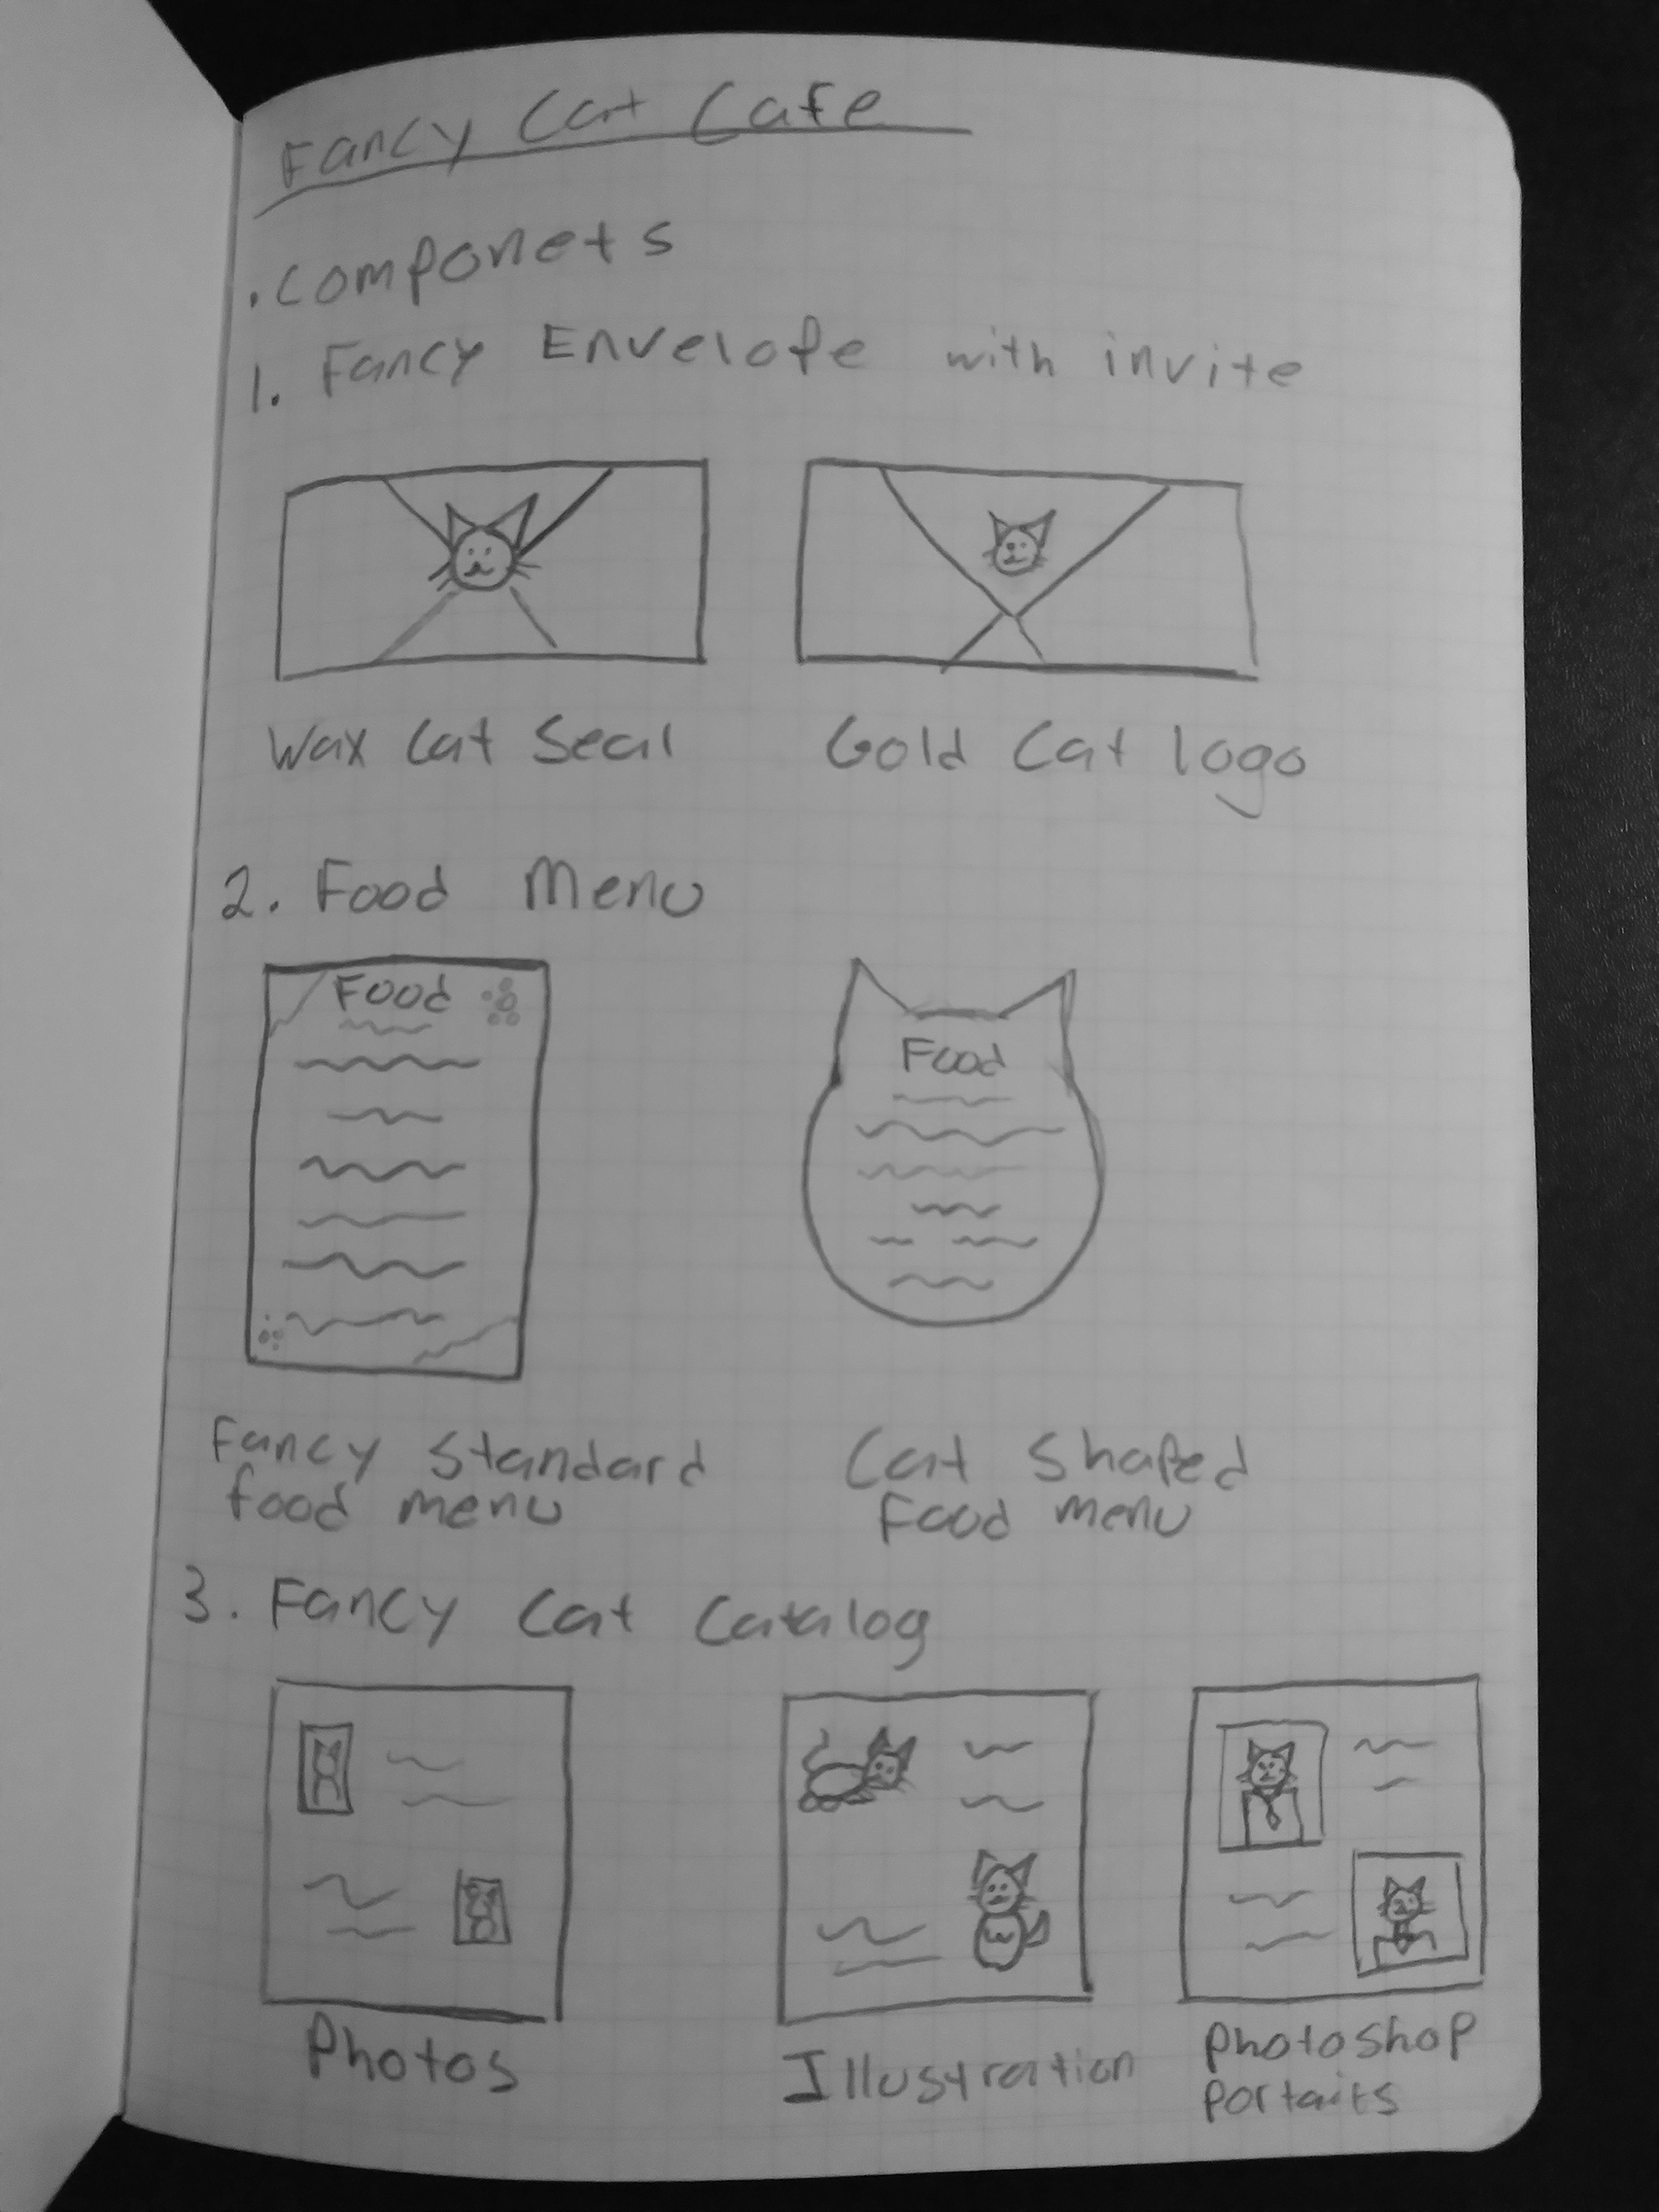 Fancy Cat Cafe
. Componets
1. Fancy Envelope with invite
Wax Cat Seal
Gold Cat logo
2. Food Menu
Food
Food
Fancy Standard
food menu
Cat Shaped
Food menu
3. Fancy Cat Catalog
Photos
Illustration
Photoshop
Portaits